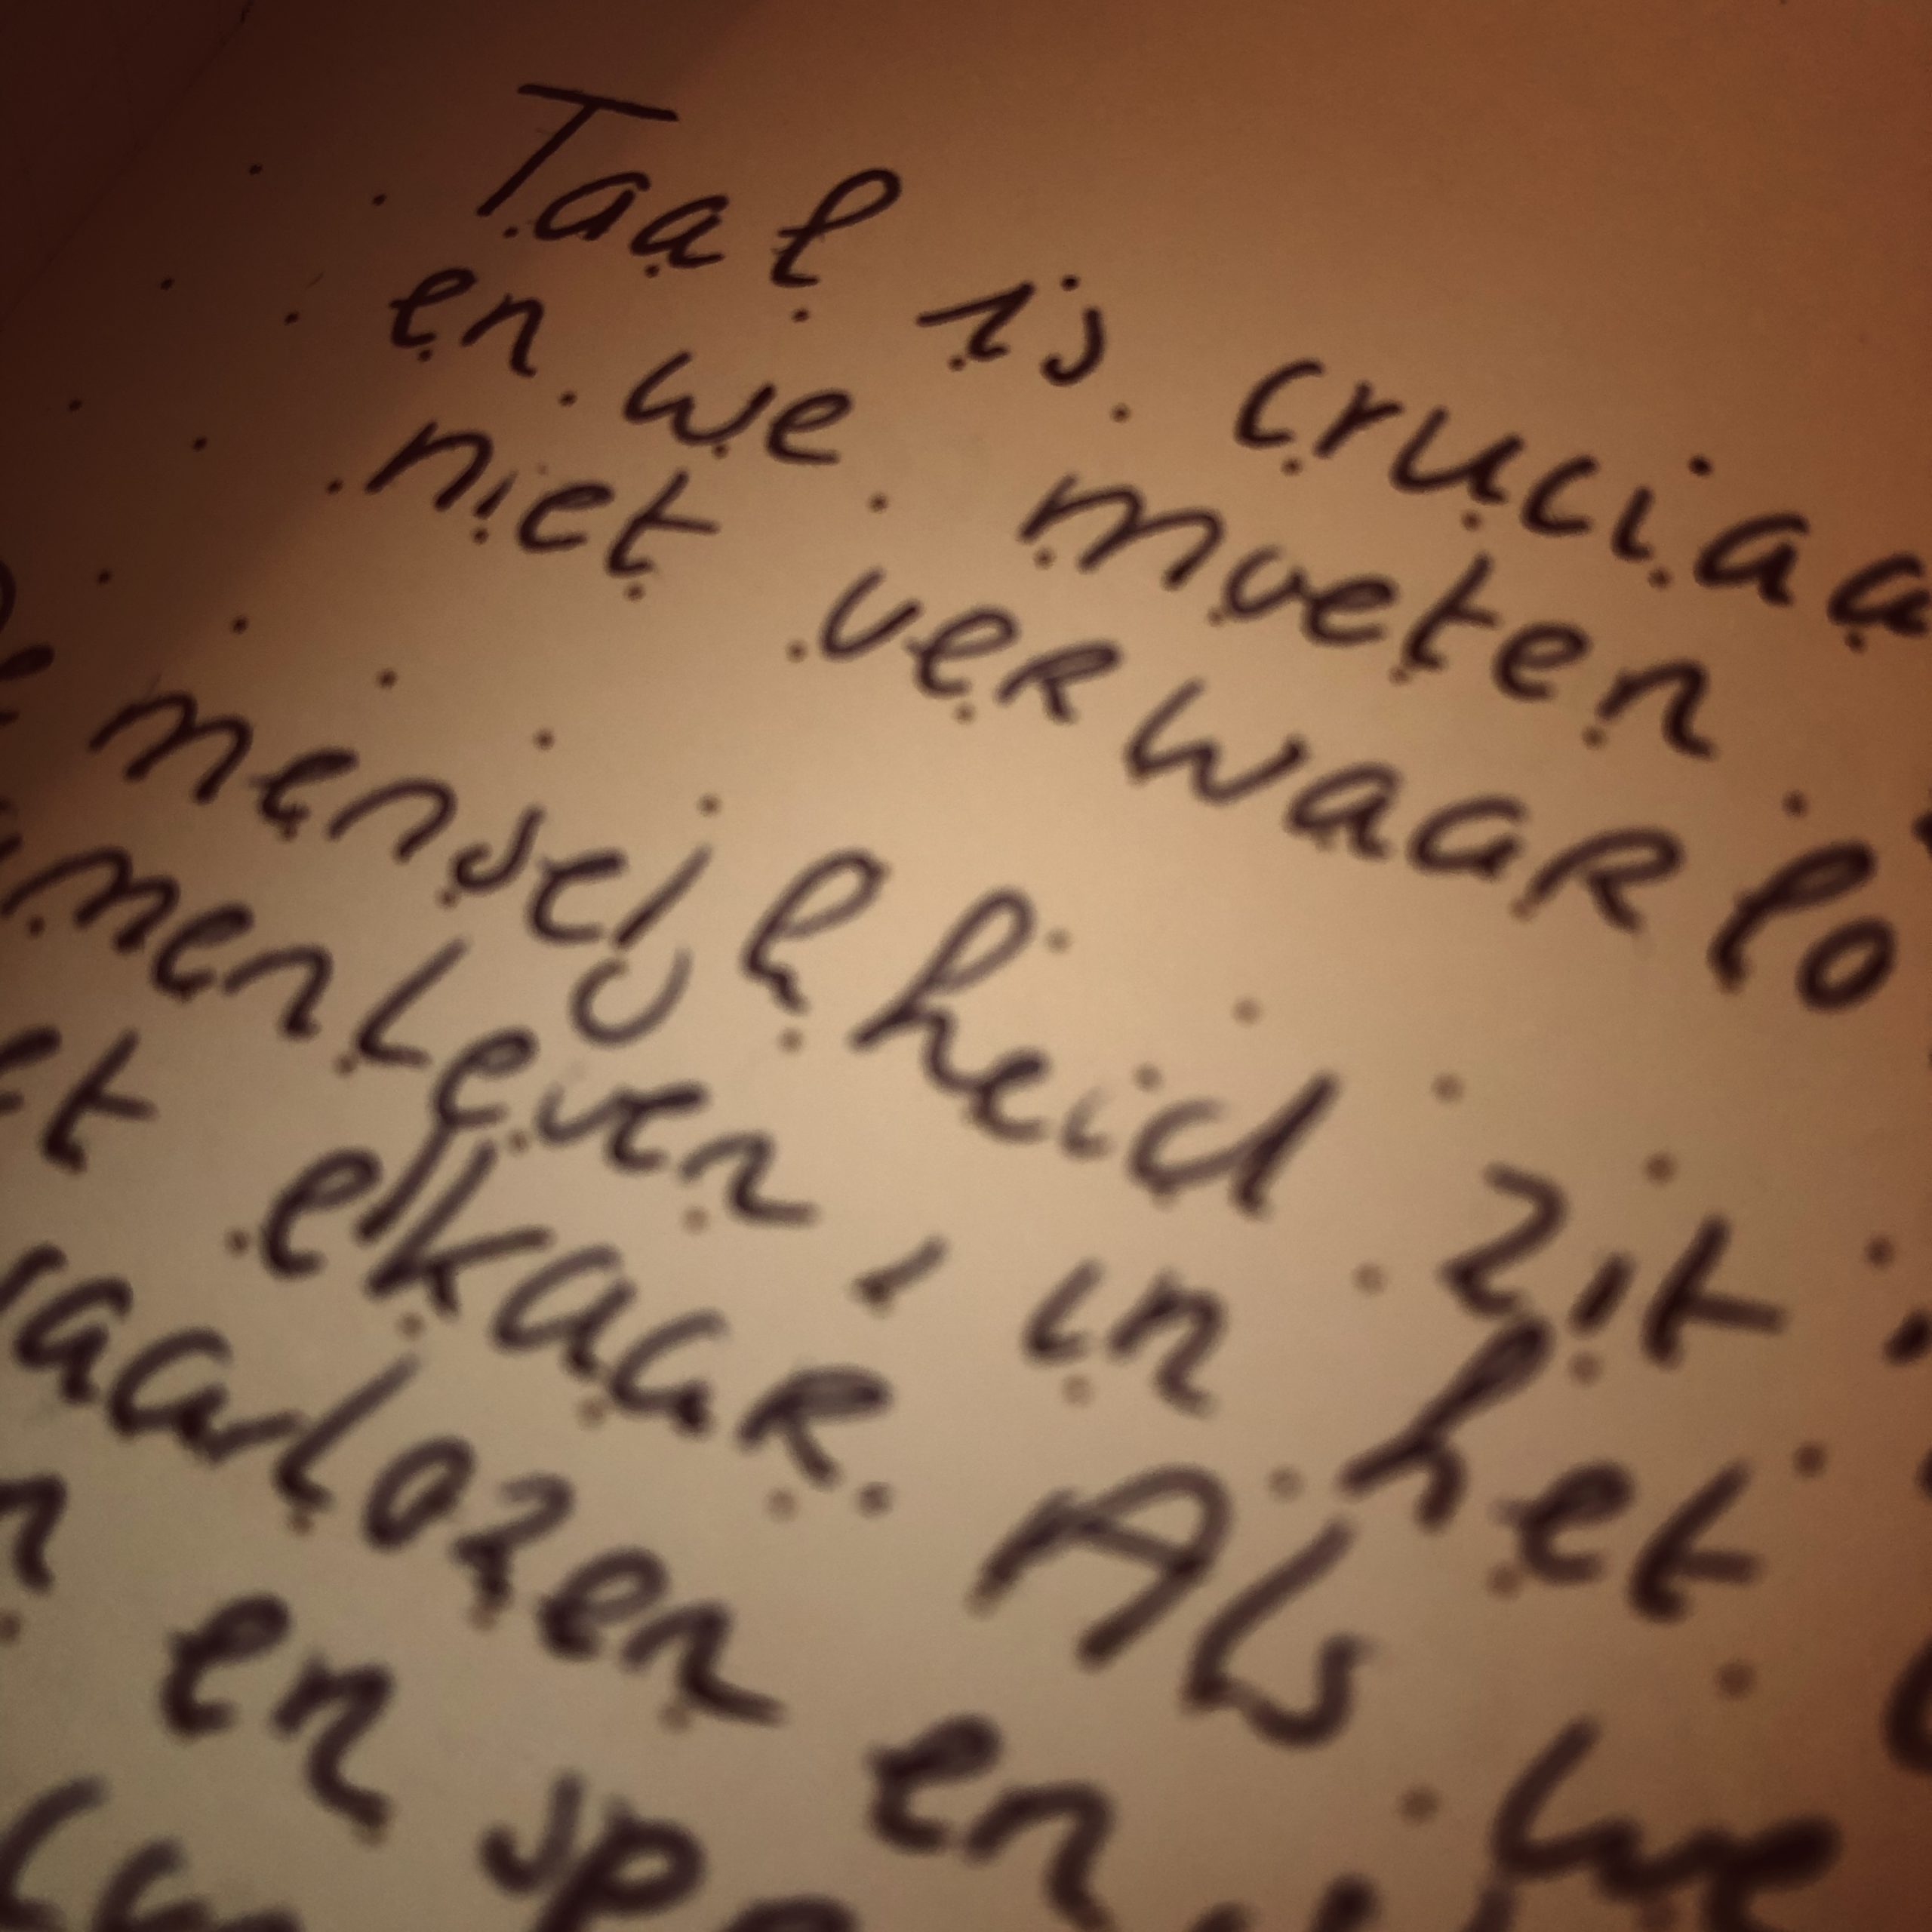 Taal is cruciaa
en we moeten
niet verwaarlo
menselijkheid zit,
menleven, in het
et elkaar. Als we
aarlozen en
en